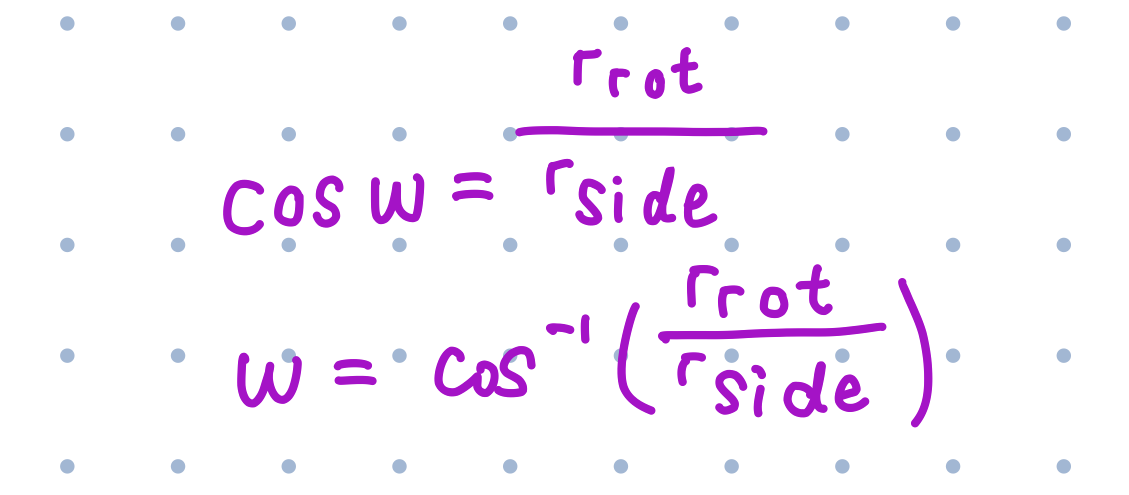 cos w = r_rot / r_side
w = cos^-1 (r_rot / r_side)